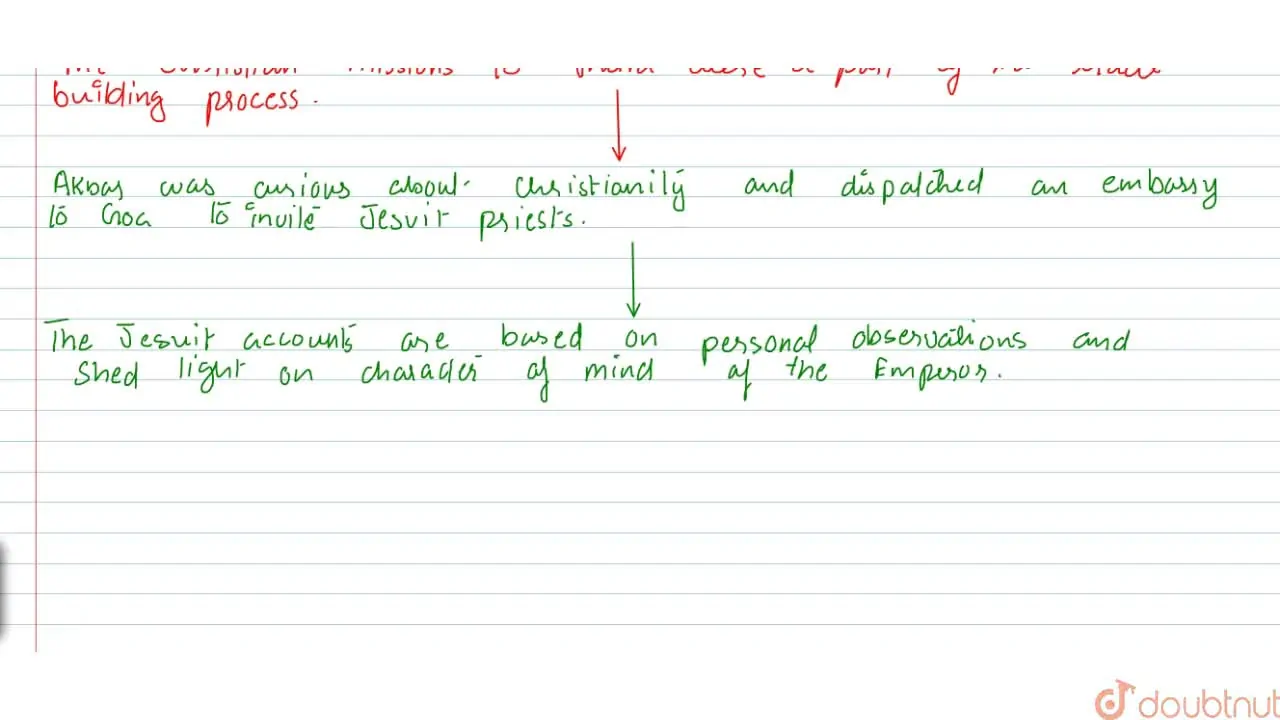 The Christian missions to India were a part of the
building process.
Akbar was curious about christianity and dispatched an embassy
to Goa to invite Jesuit priests.
The Jesuit accounts are based on personal observations and
Shed light on character of mind of the Emperor.
doubtnut